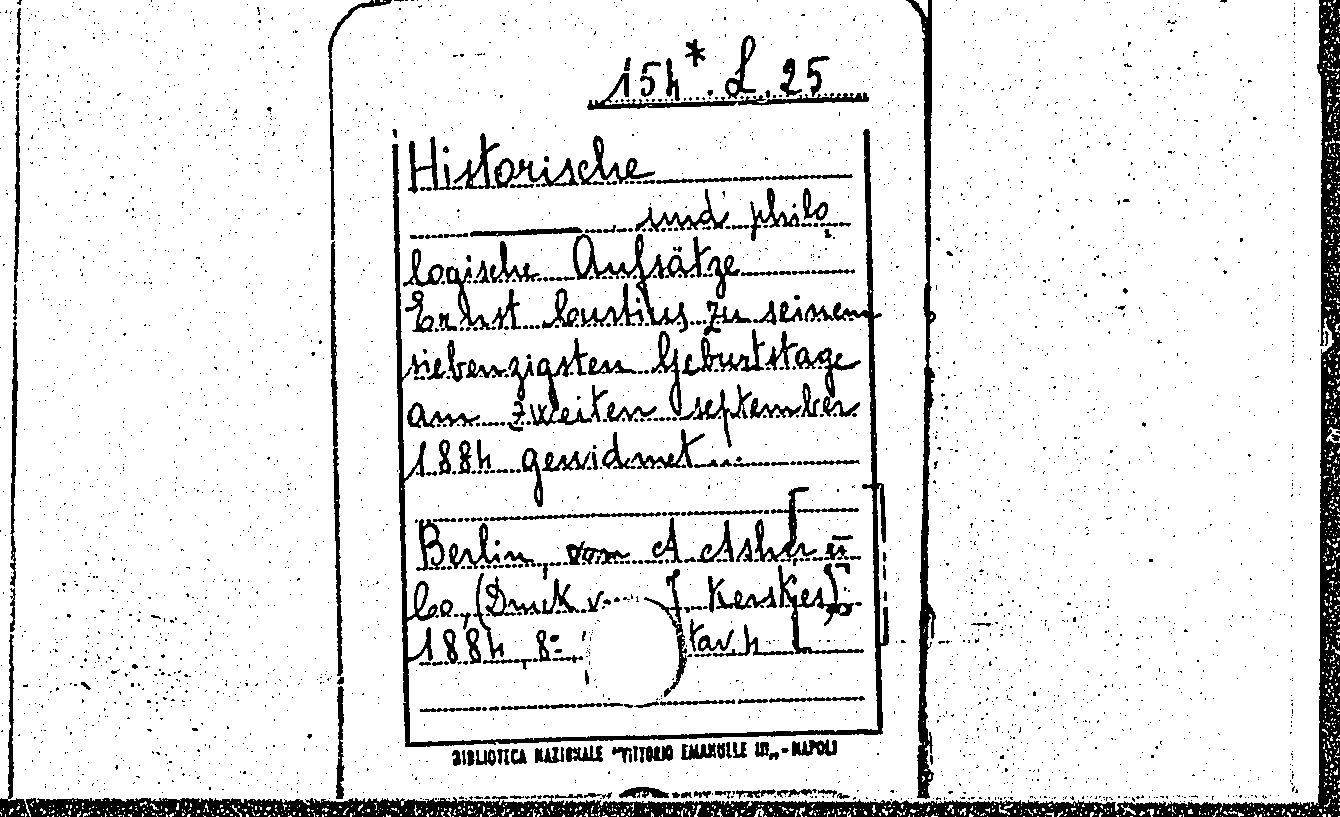 154* . L . 25
Historische
und philo
logische Aufsätze
Ernst Curtius zu seinem
siebenzigsten Geburtstage
am zweiten september
1884 gewidmet...
Berlin, vom A Asher ū
Co, (Druck v. J Kerskjes),
1884 8º tav. 4
BIBLIOTECA NAZIONALE "VITTORIO EMANUELE III„ - NAPOLI